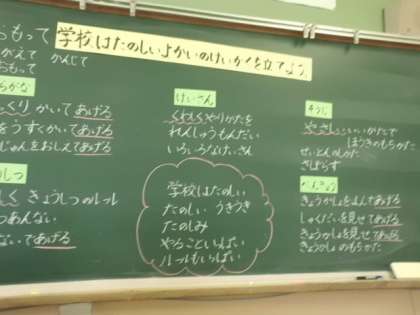 おもって
学校はたのしいよかいのけいかくを立てよう。
がえて かんじて
おもって
らがな
っくりかいてあげる
をうすくかいてあげる
じゅんをおしえてあげる
しつ
しく きょうしつのルール
つあんない
ないであげる
けいさん
くわしくやりかたを
れんしゅうもんだい
いろいろなけいさん
学校はたのしい
たのしい うきうき
たのしみ
やることいっぱい
ルールもいっぱい
そうじ
やさしいいいかたで
ほうきのもちかた
せいとんのしかた
さぼらず
べんきょう
きょうかしょをよんであげる
しゅくだいを見せてあげる
きょうかしょを見せてあげる
きょうかしょのもちかた